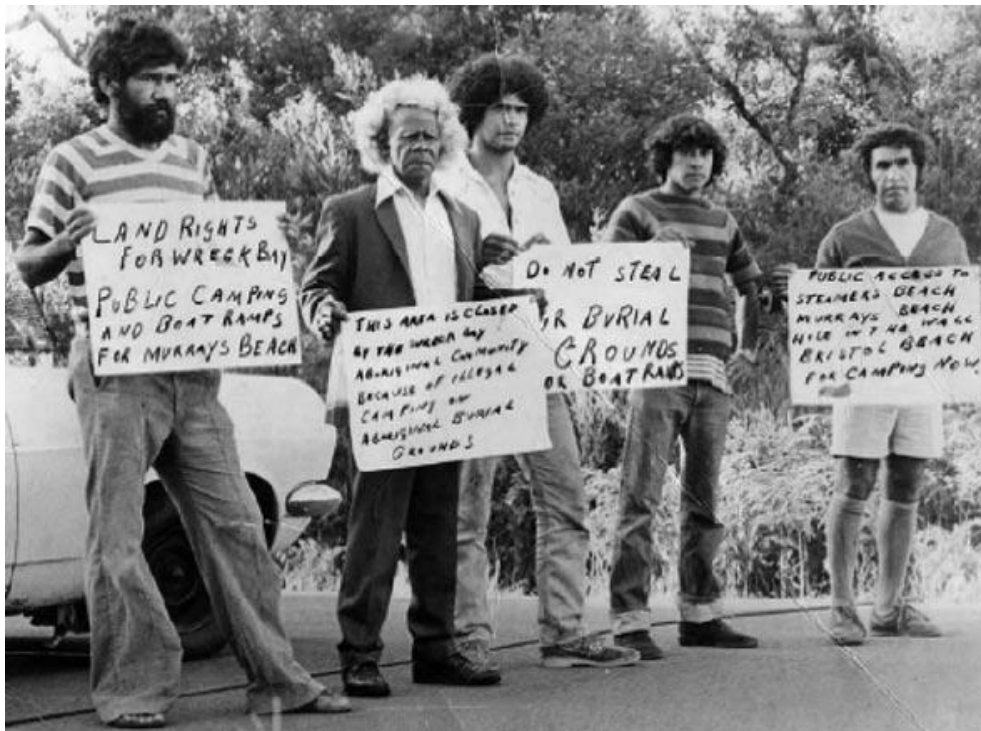 LAND RIGHTS
FOR WRECK BAY
PUBLIC CAMPING
AND BOAT RAMPS
FOR MURRAYS BEACH
THIS AREA IS CLOSED
BY THE WRECK BAY
ABORIGINAL COMMUNITY
BECAUSE OF ILLEGAL
CAMPING ON
ABORIGINAL BURIAL
GROUNDS
DO NOT STEAL
BURIAL
GROUNDS
OR BOAT RAMPS
PUBLIC ACCESS TO
STEAMERS BEACH
MURRAYS BEACH
HOLE IN THE WALL
BRISTOL BEACH
FOR CAMPING NOW